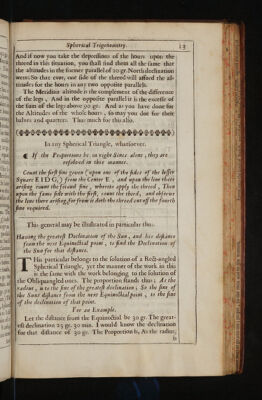 Spherical Trigonometry. 13
And if now you take the depressions of the hours upon the
thread in this situation, you shall find them all the same that
the altitudes in the former parallel of 20 gr. North declination
were. So that ever, one side of the thread will afford the al-
titudes for the hours in any two opposite parallels.
The Meridian altitude is the complement of the difference
of the legs, And in the opposite parallel it is the excesse of
the sum of the legs above 90 gr. And as you have done for
the Altitudes of the whole hours, so may you doe for their
halves and quarters. Thus much for this also.
In any Spherical Triangle, whatsoever.
If the Proportions be in right Sines alone, they are
resolved in this manner.
Count the first sine given (upon one of the sides of the lesser
Square E I D G,) from the Center E, and upon the line there
arising count the second sine, whereto apply the thread, Then
upon the same side with the first, count the third, and observe
the line there arising, for from it doth the thread cut off the fourth
sine required.
This general may be illustrated in particular thus.
Having the greatest Declination of the Sun, and his distance
from the next Equinoctial point, to find the Declination of
the Sun for that distance.
THis particular belongs to the solution of a Rect-angled
Spherical Triangle, yet the manner of the work in this
is the same with the work belonging to the solution of
the Obliquangled ones. The proportion stands thus; As the
radius, is to the sine of the greatest declination; So the sine of
the Suns distance from the next Equinoctial point, to the sine
of the declination of that point.
For an Example.
Let the distance from the Equinoctial be 30 gr. The great-
est declination 23 gr. 30 min. I would know the declination
for that distance of 30 gr. The Proportion is, As the radius,
is